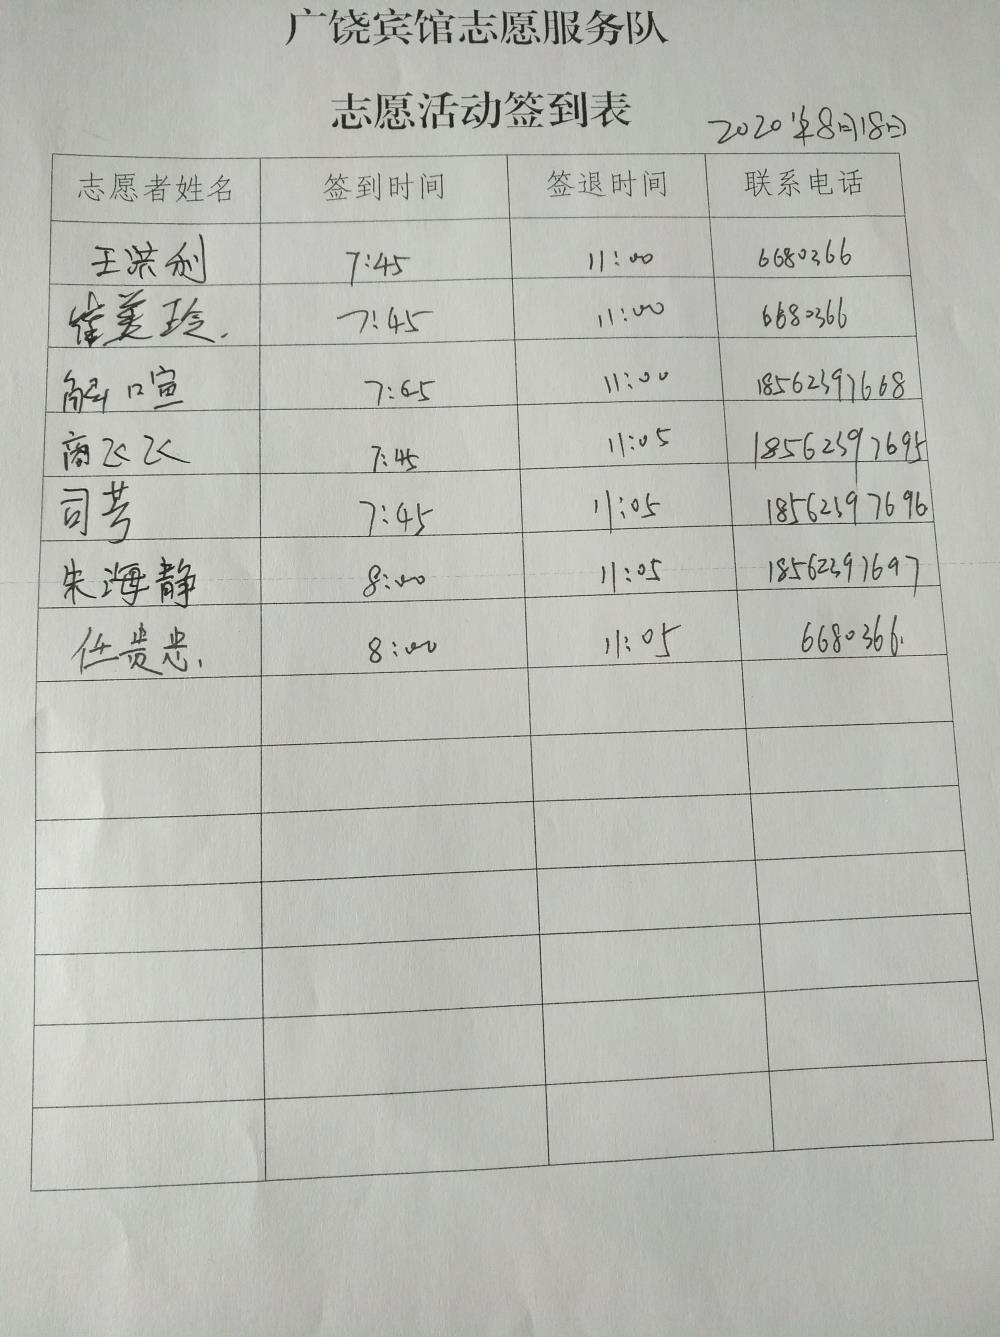 广饶宾馆志愿服务队
志愿活动签到表
2020年8月18日
志愿者姓名 签到时间 签退时间 联系电话
王洪利 7:45 11:00 6680366
崔美玲. 7:45 11:00 6680366
7:45 11:00 18562397668
商飞飞 7:45 11:05 18562397695
司芳 7:45 11:05 18562397696
朱海静 8:00 11:05 18562397697
任贵忠. 8:00 11:05 6680366.